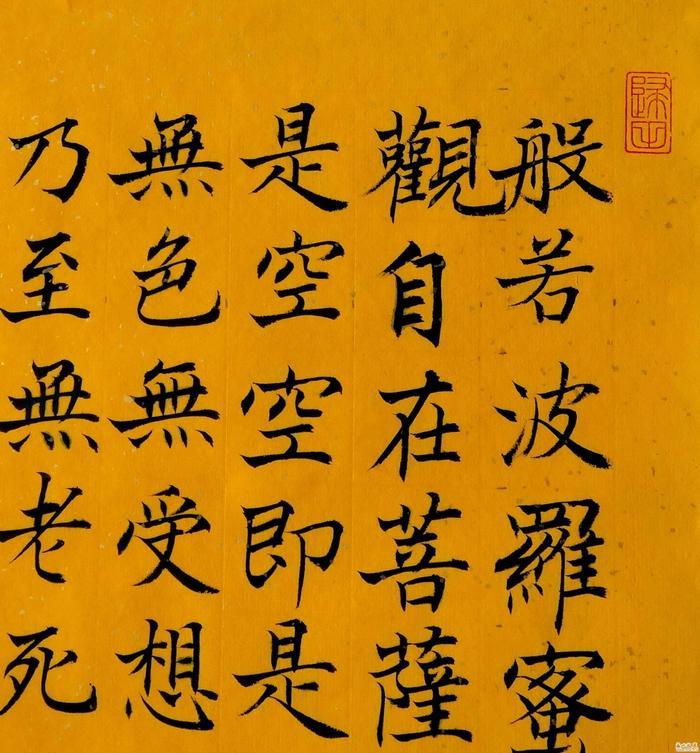 般若波羅蜜
觀自在菩薩
是空空即是
無色無受想
乃至無老死